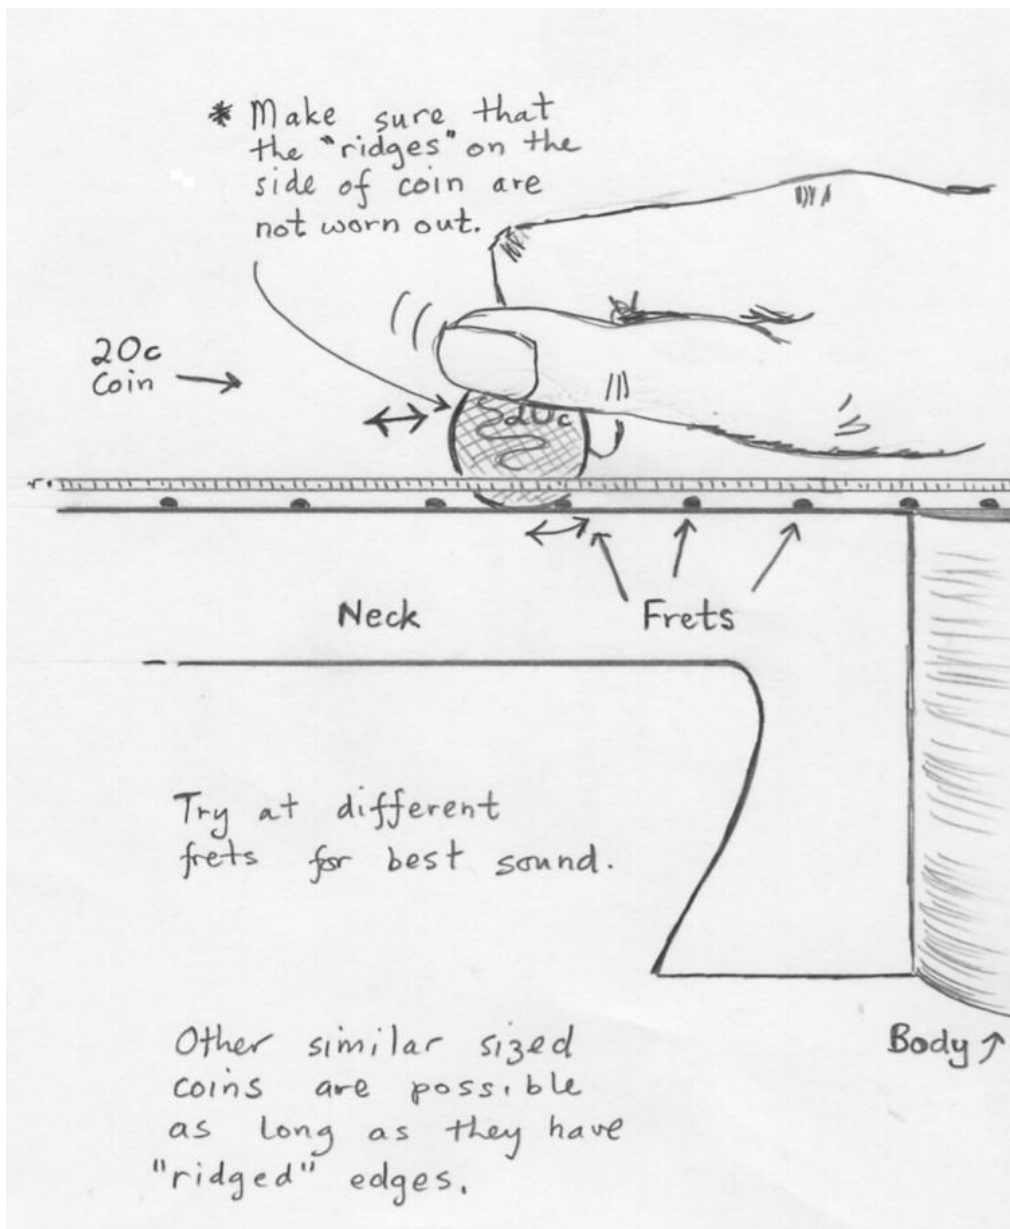 * Make sure that
the "ridges" on the
side of coin are
not worn out.
20c
Coin
20c
Neck
Frets
Try at different
frets for best sound.
Body
Other similar sized
coins are possible
as long as they have
"ridged" edges.